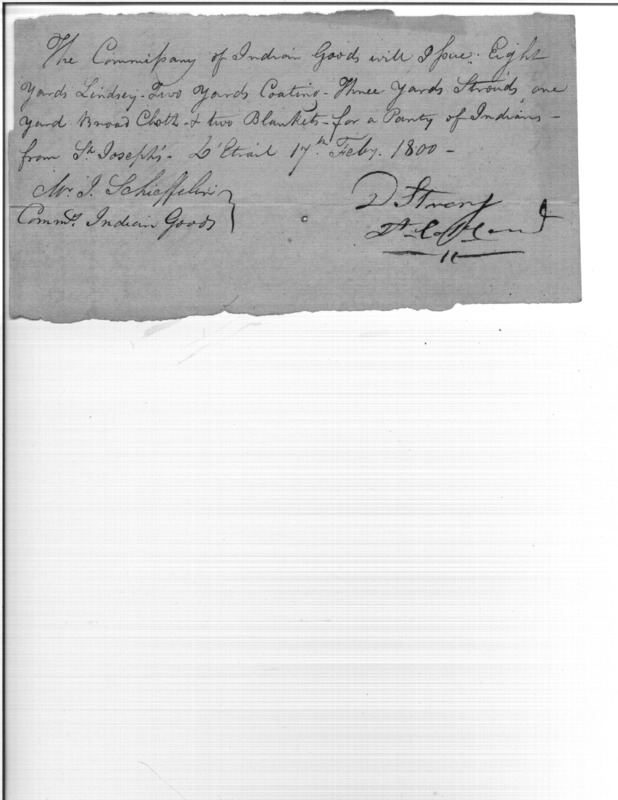 The Commissary of Indian Goods will Issue. Eight
Yards Lindsey - Two Yards Coating - Three Yards Strouds, one
yard Broad Cloth - & two Blankets - for a Party of Indians -
from St. Joseph's - D'Etroit 17th. Feby. 1800 -
Mr. J. Schieffelin
Commy. Indian Goods
D Strong
Lt. Col.